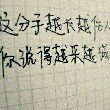 这分子越长越什么
你说得越来越诚